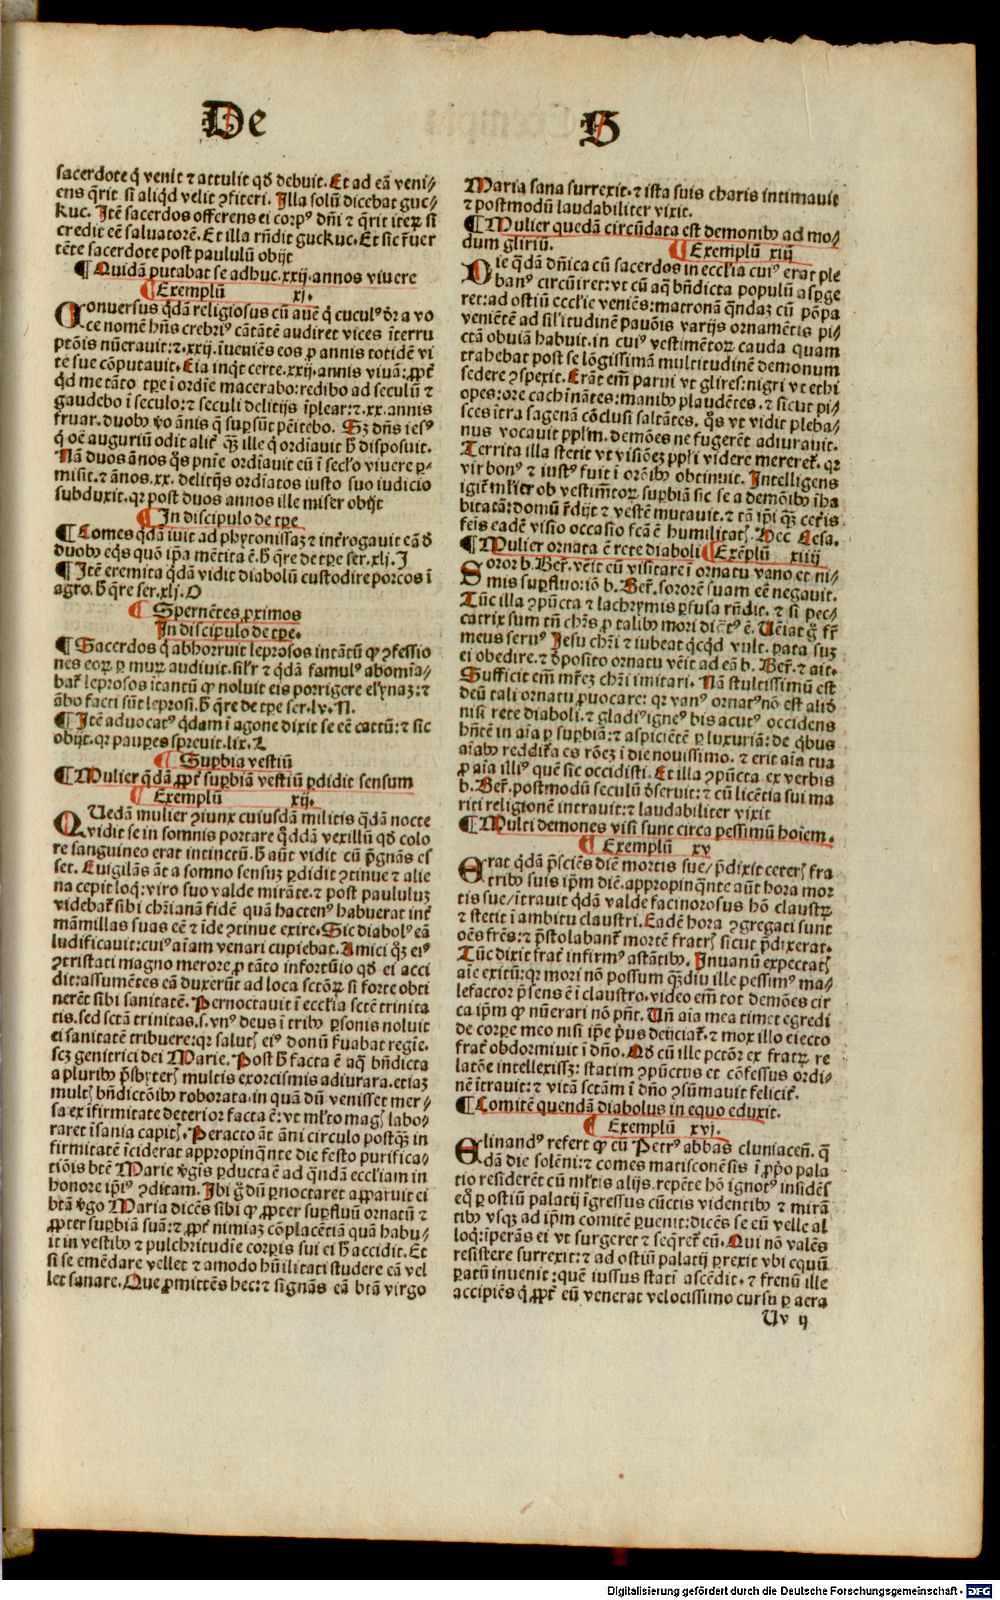 De S
sacerdote q̄ venit ⁊ attulit qď debuit. Et ad eā veni⸗
ens q̄rit si aliqď velit ꝯfiteri. Illa solū dicebat guc⸗
kuc. Itē sacerdos offerens ei corpꝰ dn̄i ⁊ q̄rit iteꝝ si
credit eē saluatorē. Et illa rn̄dit guckuc. Et sic
tēte sacerdote post paululū obijt
¶ Quidā putabat se adhuc .xxij. annos viuere
¶ Exemplū xi.
Conuersus qďā religiosus cū auē q̄ cuculꝰ dr̄: a vo
ce nomē hn̄s crebriꝰ cātātē audiret vices īterru
ptōis nūerauit: ⁊ .xxij. īueniēs eos ꝓ annis totidē vi
te sue cōputauit. Eia inqt certe .xxij. annis viuā: ꝓpt̄
qď me tāto tꝑe ī ordīe macerabo: redibo ad seculū ⁊
gaudebo ī seculo: ⁊ seculi delitijs īplear: ⁊ .xx. annis
fruar. duobꝰ v̄o ānis q̄ suꝑsūt penitebo. Sꝫ dn̄s iesꝰ
q̄ oē auguriū odit alit̄ qꝫ ille q̄ ordīauit h̄ disposuit.
Nā duos ānos q̄s pnīe ordīauit eū ī seclo viuere ꝑ⸗
misit. ⁊ ānos .xx. delitijs ordīatos iusto suo iudicio
subduxit. qr post duos annos ille miser obijt
¶ In discipulo de tꝑe
¶ Comes qďā iuit ad phytonissaꝫ ⁊ īterogauit eā ď
duobꝰ eq̄s quō ip̄a mētita ē. h̄ q̄re de tꝑe ser. xlj. I
¶ Itē eremita qďā vidit diabolū custodire porcos ī
agro. h̄ q̄re ser. xlj. O
¶ Spernētes ꝓximos
In discipulo de tꝑe.
¶ Sacerdos q̄ abhorruit leprosos intātū ꝙ ꝯfessio
nes eoꝝ ꝑ muꝝ audiuit. silr̄ ⁊ qďā famulꝰ abomīa⸗
bat̄ leprosos ītantū ꝙ noluit eis porrigere elynaꝫ: ⁊
ābo facti sūt leprosi. h̄ q̄re de tꝑe ser. lv. N.
¶ Itē aduocatꝰ qďam ī agone dixit se eē cattū: ⁊ sic
obijt. qr pauꝑes spreuit. lix. L
¶ Suꝑbia vestiū
¶ Mulier qďā ꝓpt̄ suꝑbiā vestiū ꝑdidit sensum
¶ Exemplū xij.
QUedā mulier ꝯiunx cuiusdā militis qďā nocte
vidit se in somnis portare qďdā vexillū qď colo
re sanguineo erat intinctū. h̄ aūt vidit cū p̄gnās es
set. Euigilās āt a somno sensuꝫ ꝑdidit ꝯtinue ⁊ alie
na cepit loq̄: viro suo valde mirāte. ⁊ post paululuꝫ
videbat̄ sibi chr̄ianā fidē quā hactenꝰ habuerat int̄
māmillas suas eē ⁊ īde ꝯtinue exire. Sic diabolꝰ eā
ludificauit: cuiꝰ aīam venari cupiebat. Amici qꝫ eiꝰ
ꝯtristati magno merore ꝓ tāto infortūio qď ei acci
dit: assumētes eā duxerūt ad loca sctōꝝ si forte obti
nerēt sibi sanitatē. Pernoctauit ī ecclīa sctē trinita
tis. sed sctā trinitas .s. vnꝰ deus ī tribꝰ ꝑsonis noluit
ei sanitatē tribuere: qr salutꝭ eiꝰ donū f̄uabat regie.
scꝫ genitrici dei Marie. Post h̄ facta ē aq̄ bn̄dicta
a pluribꝰ p̄sbyterꝭ multis exorcismis adiurara. etiaꝫ
multꝭ bn̄dictōibꝰ roborata. in quā dū venisset mer⸗
sa ex ifirmitate deterior facta ē: vt ml̄to magꝭ labo⸗
raret īsania capitꝭ. Peracto āt āni circulo postqꝫ in
firmitatē īciderat appropinq̄nte die festo purifica⸗
tiōis btē Marie v̄gis ꝑducta ē ad qn̄dā ecclīam in
honore ip̄iꝰ ꝯditam. Ibi g̊ dū ꝑnoctaret apparuit ei
btā v̄go Maria dicēs sibi ꝙ ꝓpter suꝑfluū ornatū ⁊
ꝓpter suꝑbiā suā: ⁊ ꝓpt̄ nimiaꝫ cōplacētiā quā habu⸗
it in vestibꝰ ⁊ pulchritudīe corꝑis sui ei h̄ accidit. Et
si se emēdare vellet ⁊ amodo hūilitati studere eā vel
let sanare. Que ꝓmittēs hec: ⁊ signās eā btā virgo
Maria sana surrexit. ⁊ ista suis charis intimauit
⁊ postmodū laudabiliter vixit.
¶ Mulier quedā circūdata est demonibꝰ ad mo⸗
dum gliriū. ¶ Exemplū xiij
DIe qďā dn̄ica cū sacerdos in ecclīa cuiꝰ erat ple
banꝰ circūiret: vt cū aq̄ bn̄dicta populū asꝑge
ret: ad ostiū ecclīe veniēs: matronā qn̄daꝫ cū pōpa
veniētē ad sil'itudinē pauōis varijs ornamētis pi⸗
ctā obuiā habuit. in cuiꝰ vestimētoꝝ cauda quam
trahebat post se lōgissimā multitudinē demonum
sedere ꝯspexit. Erāt em̄ parui vt glires: nigri vt ethi
opes: ore cachīnātes: manibꝰ plaudētes. ⁊ sicut pi⸗
sces ītra sagenā cōclusi saltātes. q̄s vt vidit pleba⸗
nus vocauit ppl̄m. demōes ne fugerēt adiurauit.
Territa illa stetit vt visiōeꝫ ppl̄i videre mereret̄. qr
vir bonꝰ ⁊ iustꝰ fuit ī orōibꝰ obtinuit. Intelligens
igit̄ ml̄ier ob vestim̄toꝝ suꝑbiā sic se a demōibꝰ īha
bitatā: domū r̄dijt ⁊ vestē mutauit. ⁊ tā ip̄i qꝫ cet̄is
feīs eadē visio occasio fcā ē humilitatꝭ. Hec Cesa.
¶ Mulier ornata ē rete diaboli ¶ Exēplū xiiij
SOror b. Ber̄. vēit eū visitare ī ornatu vano et ni⸗
mis suꝑfluo: iō b. Ber̄. sororē suam eē negauit.
Tūc illa ꝯpūcta ⁊ lachrymis ꝑfusa rn̄dit. ⁊ si pec⸗
catrix sum tn̄ chr̄s ꝓ talibꝰ mori dictꝰ ē. Ueīat g̊ fr̄
meus seruꝰ Jesu chr̄i ⁊ iubeat q̄cqď vult. ꝑata suꝫ
ei obedire. ⁊ ďposito ornatu vēit ad eā b. Ber̄. ⁊ ait.
Sufficit em̄ mr̄eꝫ chr̄i imitari. Nā stultissimū est
deū tali ornatu ꝓuocare: qr vanꝰ ornatꝰ nō est aliď
nisi rete diaboli. ⁊ gladiꝰ igneꝰ bis acutꝰ occidens
hn̄tē in aīa ꝑ suꝑbiā: ⁊ aspiciētē ꝑ luxuriā: de q̄bus
aīabꝰ redditā es rōeꝫ ī die nouissimo. ⁊ erit aīa tua
ꝓ aīa illiꝰ quē sic occidisti. Et illa ꝯpūcta ex verbis
b. Ber̄. postmodū seculū ďseruit: ⁊ cū licētia sui ma
riti religionē intrauit: ⁊ laudabiliter vixit
¶ Multi demones visi sunt circa pessimū hoīem.
¶ Exemplū xv
ERat qďā p̄sciēs diē mortis sue/ p̄dixit ceterꝭ fra
tribꝰ suis ip̄m diē. appropinq̄nte aūt hora mor
tis sue/ ītrauit qďā valde facinorosus hō claustꝝ
⁊ stetit ī ambitu claustri. Eadē hora ꝯgregati sunt
oēs fr̄es: ⁊ p̄stolabant̄ mortē fratrꝭ sicut p̄dixerat.
Tūc dixit frat̄ infirmꝰ astātibꝰ. Inuanū expectatꝭ
aīe exitū: qr mori nō possum qꝫdiu ille pessimꝰ ma⸗
lefactor p̄sens ē ī claustro. video em̄ tot demōes cir
ca ip̄m ꝙ nūerari nō pn̄t. Un̄ aīa mea timet egredi
de corꝑe meo nisi ip̄e p̄us deijciat̄. ⁊ mox illo eiecto
frat̄ obdormiuit ī dn̄o. Qď cū ille pctōr ex fratꝝ re
latōe intellexissꝫ: statim ꝯpūctus et cōfessus ordi⸗
nē ītrauit: ⁊ vitā sctām ī dn̄o ꝯsūmauit felicit̄.
¶ Comitē quendā diabolus in equo eduxit.
¶ Exemplū xvj.
ELinandꝰ refert ꝙ cū Petrꝰ abbas cluniacen̄. q̄
dā die solēni: ⁊ comes matisconēsis ī ꝓpo pala
tio residerēt cū ml̄tis alijs. repēte hō ignotꝰ insidēs
eq̊ ꝑ ostiū palatij īgressus cūctis videntibꝰ ⁊ mirā
tibꝰ vsqꝫ ad ip̄m comitē ꝑuenit: dicēs se eū velle al
loq̄: iperās ei vt surgeret ⁊ seq̄ret̄ eū. Qui nō valēs
resistere surrexit: ⁊ ad ostiū palatij ꝑrexit vbi equū
ꝑatū inuenit: quē iussus stati ascēdit. ⁊ frenū ille
accipiēs q̄ ꝓpt̄ eū venerat velocissimo cursu ꝑ aera
Uv ij
Digitalisierung gefördert durch die Deutsche Forschungsgemeinschaft - DFG